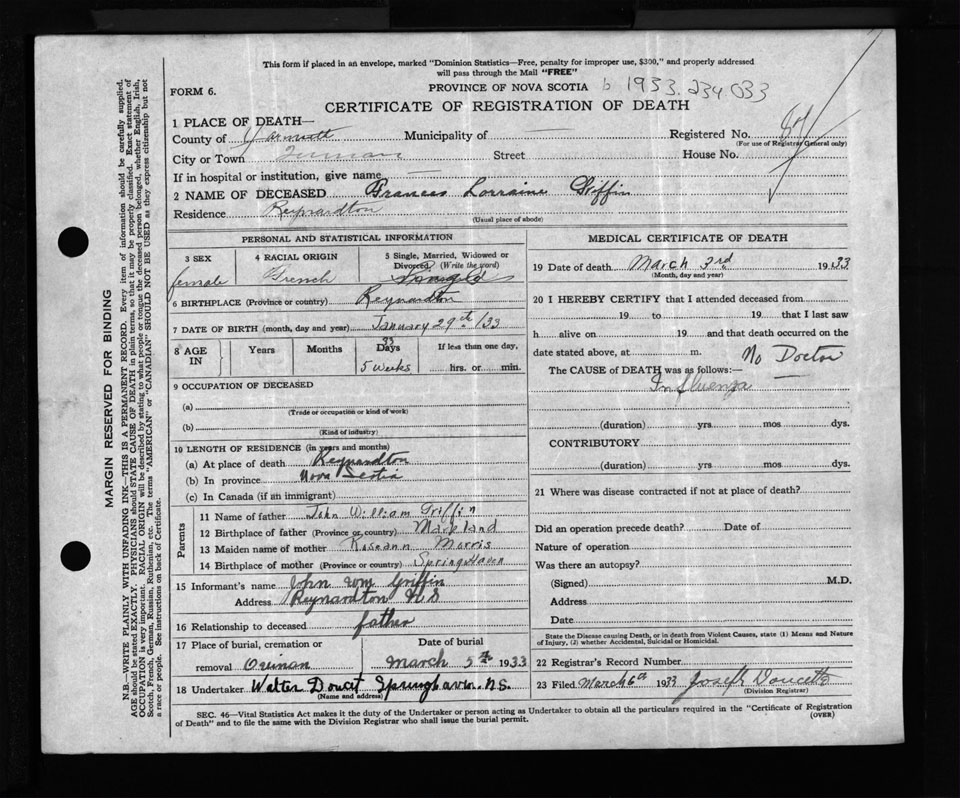 This form if placed in an envelope, marked "Dominion Statistics—Free, penalty for improper use, $300," and properly addressed
will pass through the Mail "FREE"
FORM 6.
PROVINCE OF NOVA SCOTIA b 1933. 234 033
CERTIFICATE OF REGISTRATION OF DEATH
1 PLACE OF DEATH—
County of Yarmouth Municipality of — Registered No.
(For use of Registrar General only)
City or Town Street House No.
If in hospital or institution, give name —
2 NAME OF DECEASED Frances Lorraine Griffin
Residence Reynardton
(Usual place of abode)
PERSONAL AND STATISTICAL INFORMATION
3 SEX 4 RACIAL ORIGIN 5 Single, Married, Widowed or
Divorced (Write the word)
female French Single
6 BIRTHPLACE (Province or country) Reynardton
7 DATE OF BIRTH (month, day and year) January 29th /33
8 AGE IN Years Months Days If less than one day,
33
5 weeks hrs. or min.
9 OCCUPATION OF DECEASED
(a)
(Trade or occupation or kind of work)
(b)
(Kind of industry)
10 LENGTH OF RESIDENCE (in years and months)
(a) At place of death Reynardton
(b) In province Nova Scotia
(c) In Canada (if an immigrant)
Parents
11 Name of father John William Griffin
12 Birthplace of father (Province or country)
13 Maiden name of mother Roseann Morris
14 Birthplace of mother (Province or country) Springhaven
15 Informant's name John Wm Griffin
Address Reynardton N S
16 Relationship to deceased father
17 Place of burial, cremation or Date of burial
removal Quinan March 5th 1933
18 Undertaker Walter Doucet Springhaven N.S.
(Name and address)
MEDICAL CERTIFICATE OF DEATH
19 Date of death March 3rd 1933
(Month, day and year)
20 I HEREBY CERTIFY that I attended deceased from
19 to 19 that I last saw
h alive on 19 and that death occurred on
date stated above, at m. No Doctor
The CAUSE of DEATH was as follows:
Influenza
(duration) yrs mos dys.
CONTRIBUTORY
(duration) yrs. mos. dys.
21 Where was disease contracted if not at place of death?
Did an operation precede death? Date of
Nature of operation
Was there an autopsy?
(Signed) M.D.
Address
Date
State the Disease causing Death, or in death from Violent Causes, state (1) Means and Nature
of Injury, (2) whether Accidental, Suicidal or Homicidal.
22 Registrar's Record Number
23 Filed March 6th 1933 Joseph Doucette
(Division Registrar)
SEC. 46—Vital Statistics Act makes it the duty of the Undertaker or person acting as Undertaker to obtain all the particulars required in the "Certificate of Registration
of Death" and to file the same with the Division Registrar who shall issue the burial permit.
(OVER)
MARGIN RESERVED FOR BINDING
N.B.—WRITE PLAINLY WITH UNFADING INK—THIS IS A PERMANENT RECORD. Every item of information should be carefully supplied.
AGE should be stated EXACTLY. PHYSICIANS should STATE CAUSE OF DEATH in plain terms, so that it may be properly classified. Exact statement of
OCCUPATION is very important. RACIAL ORIGIN will be described by stating to what people or tongue the deceased person belonged, whether English, Irish,
Scotch, French, German, Russian, Ruthenian, etc. The terms "AMERICAN" or "CANADIAN" SHOULD NOT BE USED as they express citizenship but not
a race or people. See instructions on back of Certificate.